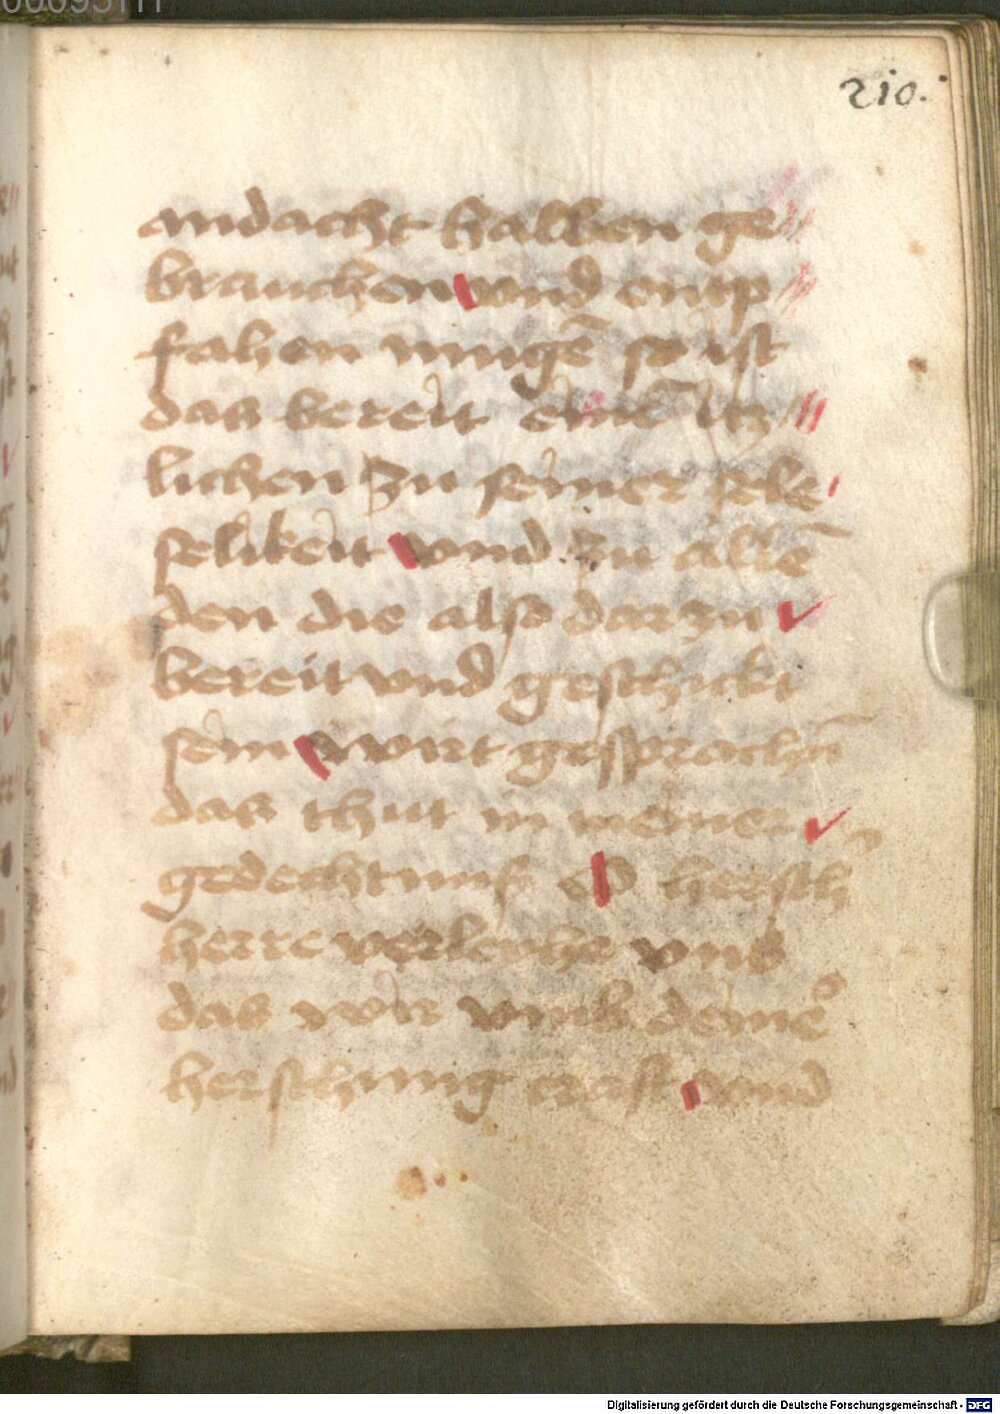 210.
andacht halben ge〃
brauchen vnd entp〃
fahen mugē so ist
das bereit einē itz〃
lichen zu seiner sele
selikeit vnd zu allē
den die also darzu
bereit vnd geschickt
sein wirt gesprochē
das thut in meiner
gedechtnuß O
herre verleyhe vns
das wir vmb deine
herschung craft vnd
Digitalisierung gefördert durch die Deutsche Forschungsgemeinschaft - DFG